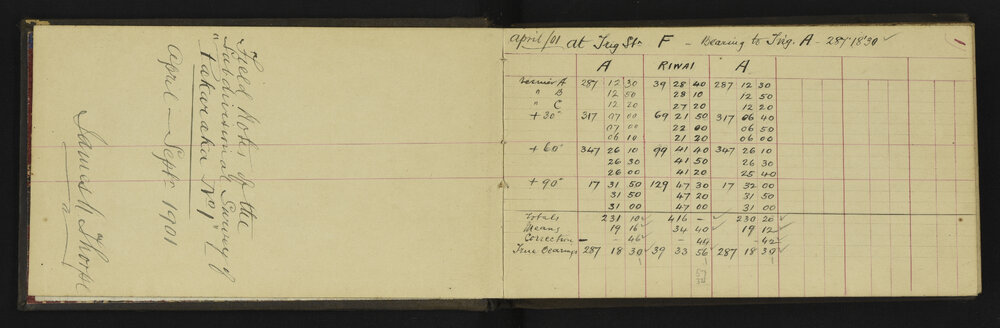 Field Notes of the
Subdivisional Survey of
" Takaraka No 1
April — Septr 1901
James H Thorpe
April/01 at Trig Stn F - Bearing to Trig. A - 287 18 30 ✓ 1
A RIWAI A
Vernier A 287 12 30 39 28 40 287 12 30
" B 12 50 28 10 12 50
" C 12 20 27 20 12 20
+ 30° 317 07 00 69 21 50 317 06 40
07 00 22 00 06 50
06 10 21 20 06 00
+ 60° 347 26 10 99 41 40 347 26 10
26 30 41 50 26 30
26 00 41 20 25 40
+ 90° 17 31 50 129 47 30 17 32 00
31 50 47 20 31 50
31 00 47 00 31 00
Totals 231 10 ✓ 416 - ✓ 230 20 ✓
Means 19 16 ✓ 34 40 ✓ 19 12 ✓
Correction - - 46 ✓ - 44 - 42 ✓
True Bearings 287 18 30 ✓ 39 33 56 ✓ 287 18 30 ✓